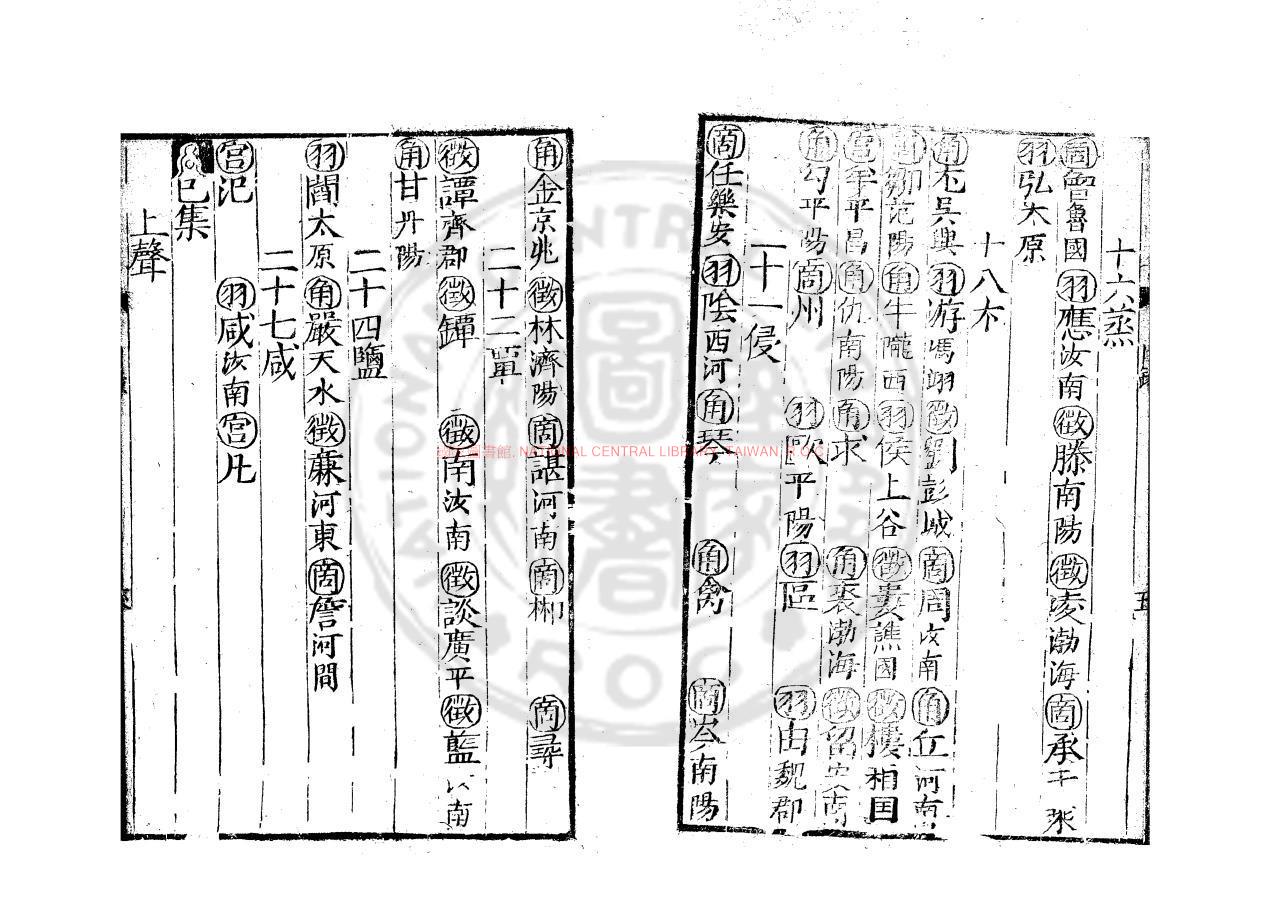 十六蒸
商曾魯國 羽應汝南 徵滕南陽 徵凌渤海 商承
羽弘太原
十八尤
角尤吳興 羽游馮翊 徵劉彭城 商周汝南 角丘河南
鄒范陽 角牛隴西 羽侯上谷 徵婁譙國 徵樓相國
宮牟平昌 角仇南陽 角求 角裘渤海 徵留
角勾平陽 商州 羽歐平陽 羽區 羽由魏郡
二十一侵
商任樂安 羽陰西河 角琴 角禽 商岑南陽
角金京兆 徵林濟陽 商諶河南 商郴 商尋
二十二覃
徵譚齊郡 徵鐔 徵南汝南 徵談廣平 徵藍 南
角甘丹陽
二十四鹽
羽閻太原 角嚴天水 徵蕪河東 商詹河間
二十七咸
宮氾 羽咸汝南 宮凡
巳集
上聲
國家圖書館, NATIONAL CENTRAL LIBRARY, TAIWAN, R.O.C.